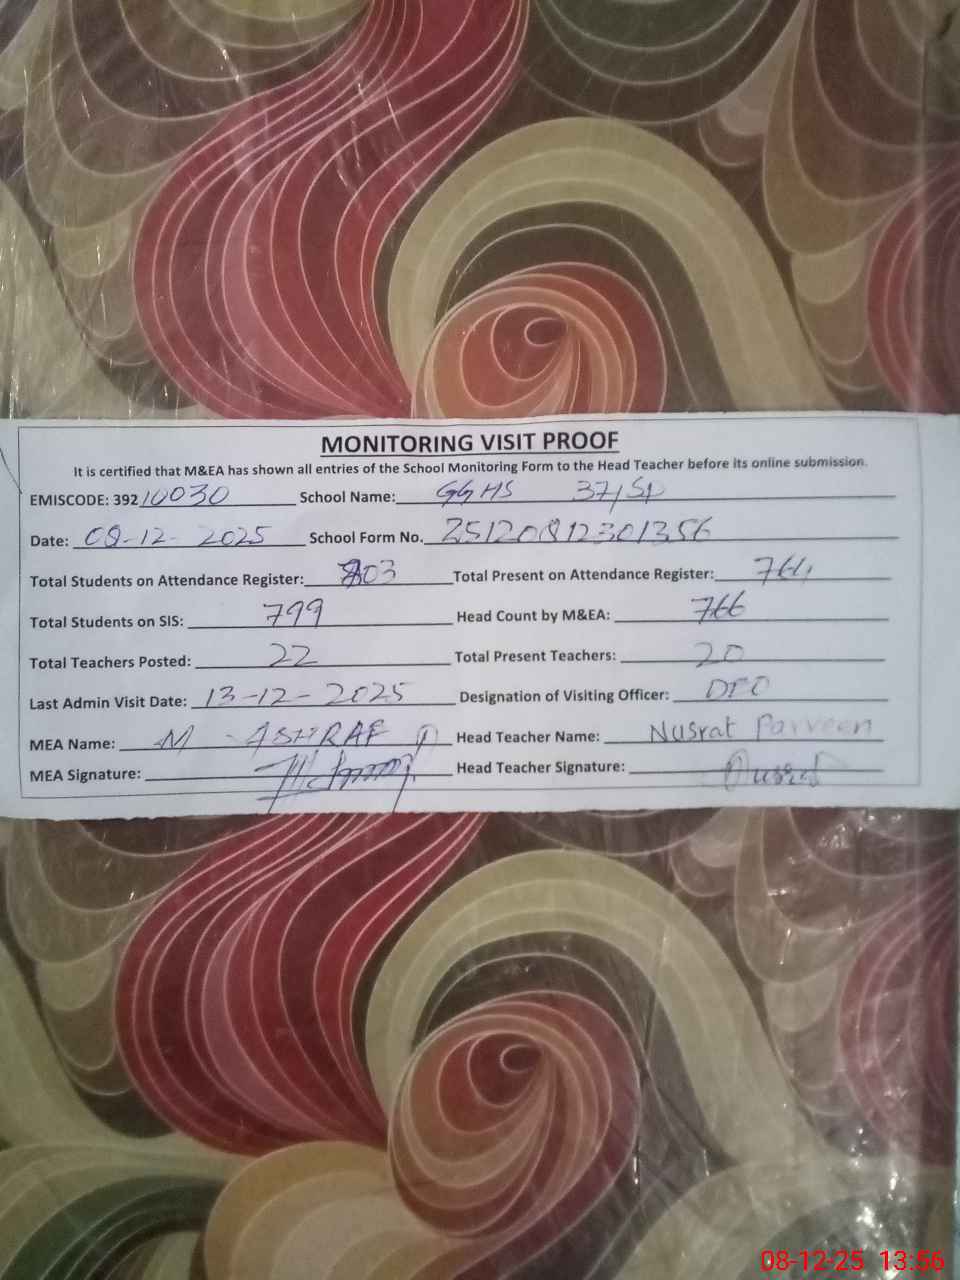 MONITORING VISIT PROOF
It is certified that M&EA has shown all entries of the School Monitoring Form to the Head Teacher before its online submission.
EMISCODE: 392 10030 School Name: GGHS 37/SP
Date: 08-12-2025 School Form No. 25120812301356
Total Students on Attendance Register: 803 Total Present on Attendance Register: 764
Total Students on SIS: 799 Head Count by M&EA: 766
Total Teachers Posted: 22 Total Present Teachers: 20
Last Admin Visit Date: 13-12-2025 Designation of Visiting Officer: DEO
MEA Name: M ASHRAF Head Teacher Name: Nusrat Parveen
MEA Signature: Head Teacher Signature: Nusrat
08-12-25 13:56